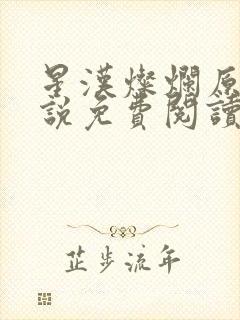 星漢燦爛原
說免費閱讀
芷步流年